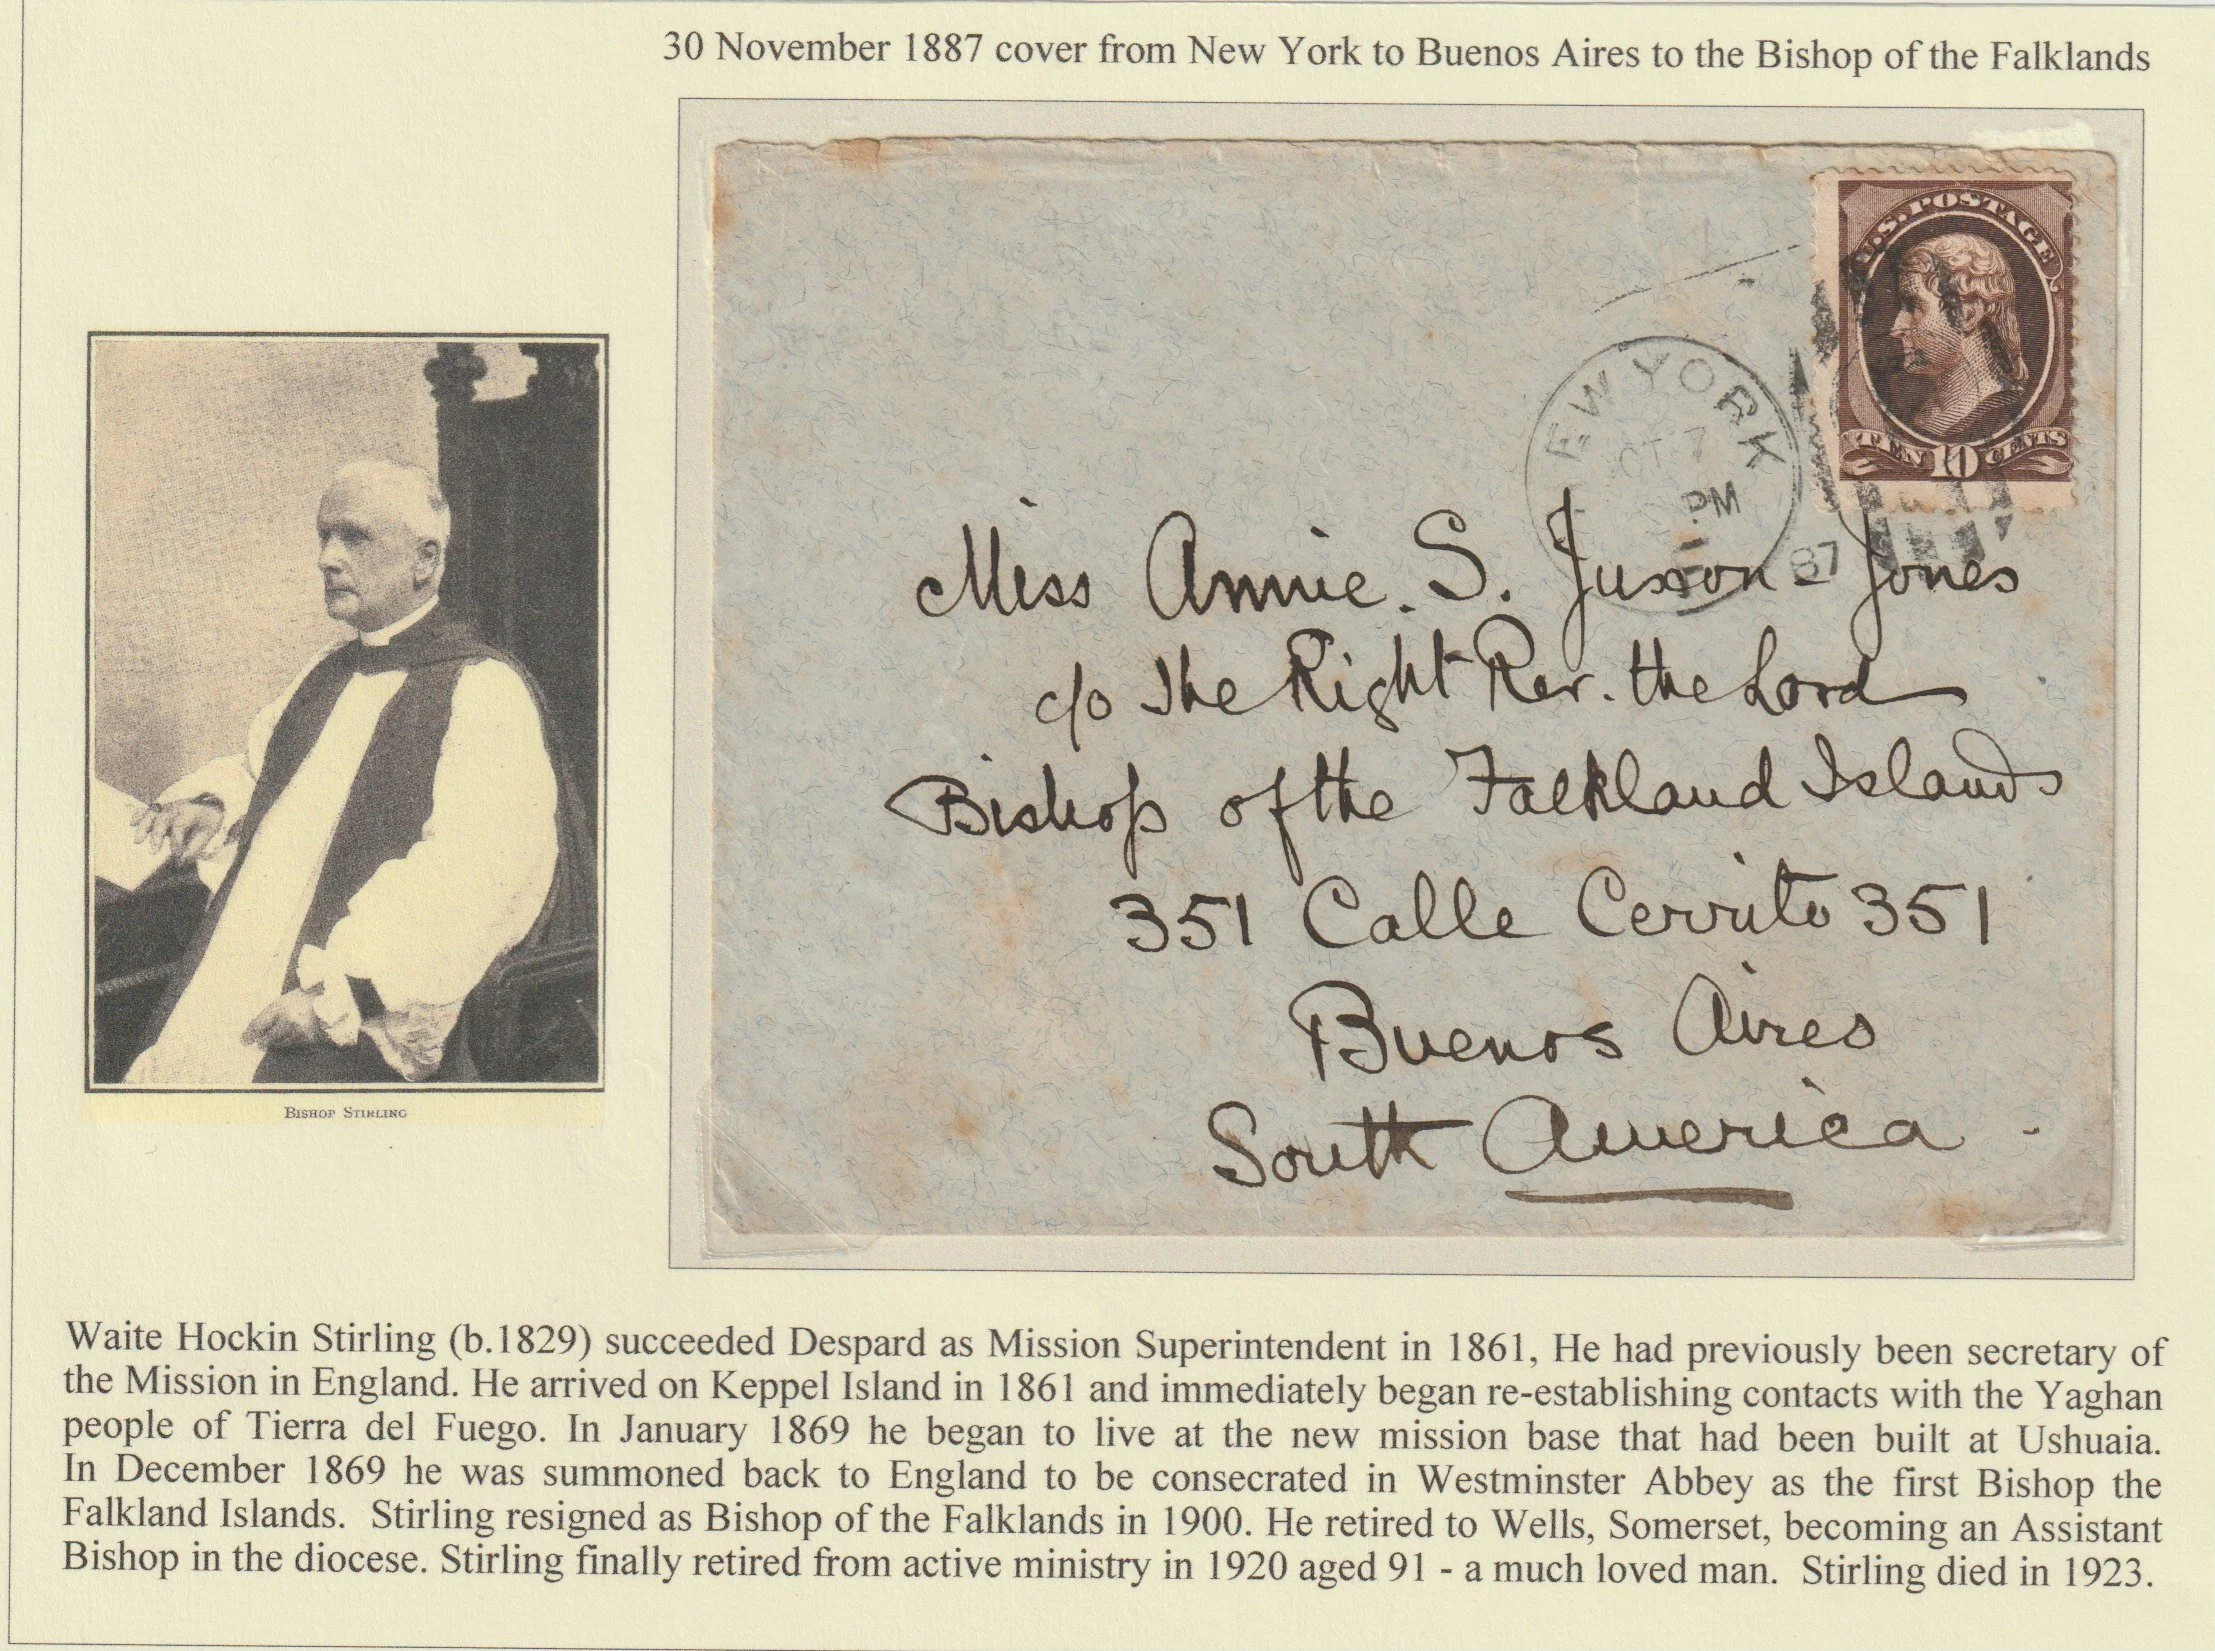 30 November 1887 cover from New York to Buenos Aires to the Bishop of the Falklands
U.S. POSTAGE
TEN 10 CENTS
EW YORK
CT 7
PM
87
Miss Annie. S. Juxon-Jones
c/o The Right Rev. the Lord
Bishop of the Falkland Islands
351 Calle Cerrito 351
Buenos Aires
South America
BISHOP STIRLING
Waite Hockin Stirling (b.1829) succeeded Despard as Mission Superintendent in 1861, He had previously been secretary of
the Mission in England. He arrived on Keppel Island in 1861 and immediately began re-establishing contacts with the Yaghan
people of Tierra del Fuego. In January 1869 he began to live at the new mission base that had been built at Ushuaia.
In December 1869 he was summoned back to England to be consecrated in Westminster Abbey as the first Bishop the
Falkland Islands. Stirling resigned as Bishop of the Falklands in 1900. He retired to Wells, Somerset, becoming an Assistant
Bishop in the diocese. Stirling finally retired from active ministry in 1920 aged 91 - a much loved man. Stirling died in 1923.